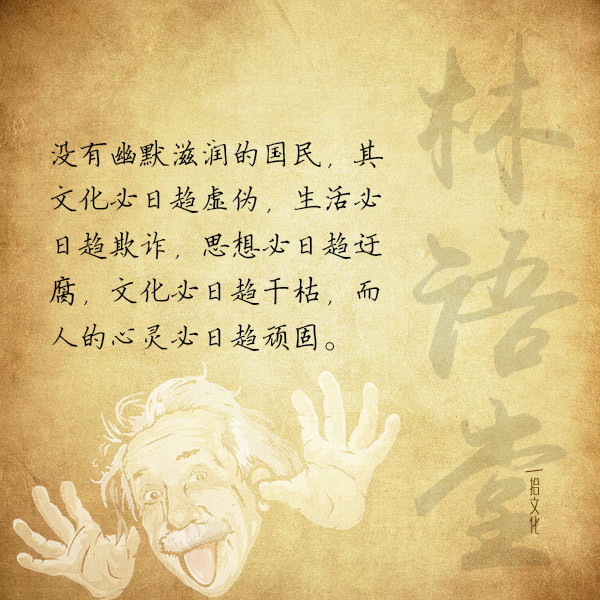 没有幽默滋润的国民，其
文化必日趋虚伪，生活必
日趋欺诈，思想必日趋迂
腐，文化必日趋干枯，而
人的心灵必日趋顽固。
林语堂
一拾文化